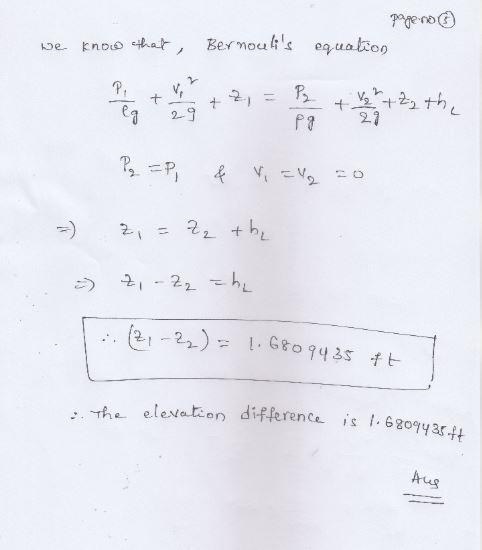 page no ⑤
we know that, Bernouli's equation
P₁/ρg + V₁²/2g + z₁ = P₂/ρg + V₂²/2g + z₂ + h_L
P₂ = P₁ & V₁ = V₂ = 0
=) z₁ = z₂ + h_L
=) z₁ - z₂ = h_L
∴ (z₁ - z₂) = 1.6809435 ft
∴ The elevation difference is 1.6809435 ft
Ans